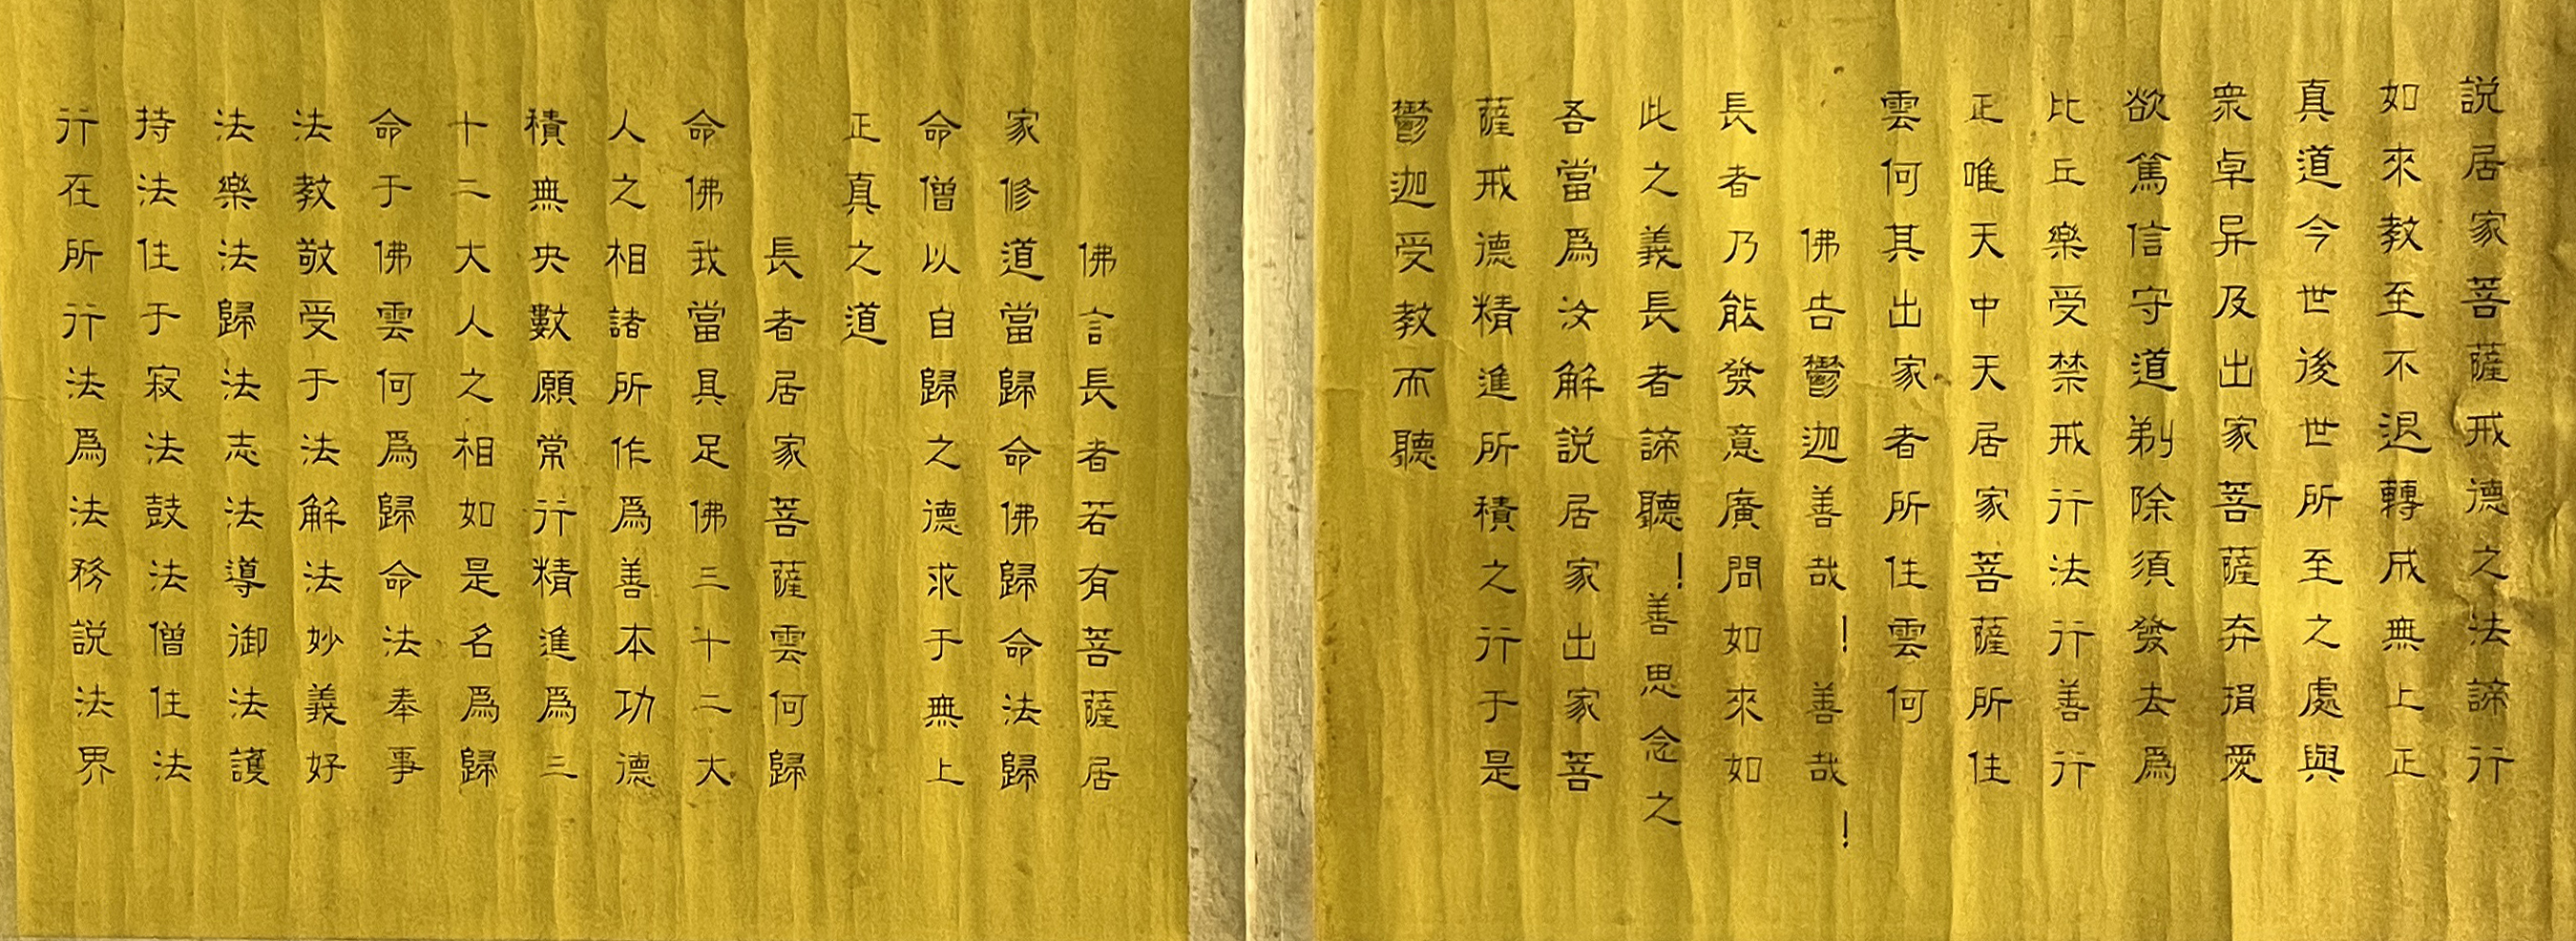 説居家菩薩戒德之法諦行
如來教至不退轉成無上正
真道今世後世所至之處與
衆卓异及出家菩薩弃捐愛
欲篤信守道剃除須發去爲
比丘樂受禁戒行法行善行
正唯天中天居家菩薩所住
雲何其出家者所住雲何
佛告鬱迦善哉！善哉！
長者乃能發意廣問如來如
此之義長者諦聽！善思念之
吾當爲汝解説居家出家菩
薩戒德精進所積之行于是
鬱迦受教而聽
佛言長者若有菩薩居
家修道當歸命佛歸命法歸
命僧以自歸之德求于無上
正真之道
長者居家菩薩雲何歸
命佛我當具足佛三十二大
人之相諸所作爲善本功德
積無央數願常行精進爲三
十二大人之相如是名爲歸
命于佛雲何爲歸命法奉事
法教敬受于法解法妙義好
法樂法歸法志法導御法護
持法住于寂法鼓法僧住法
行在所行法爲法務説法界